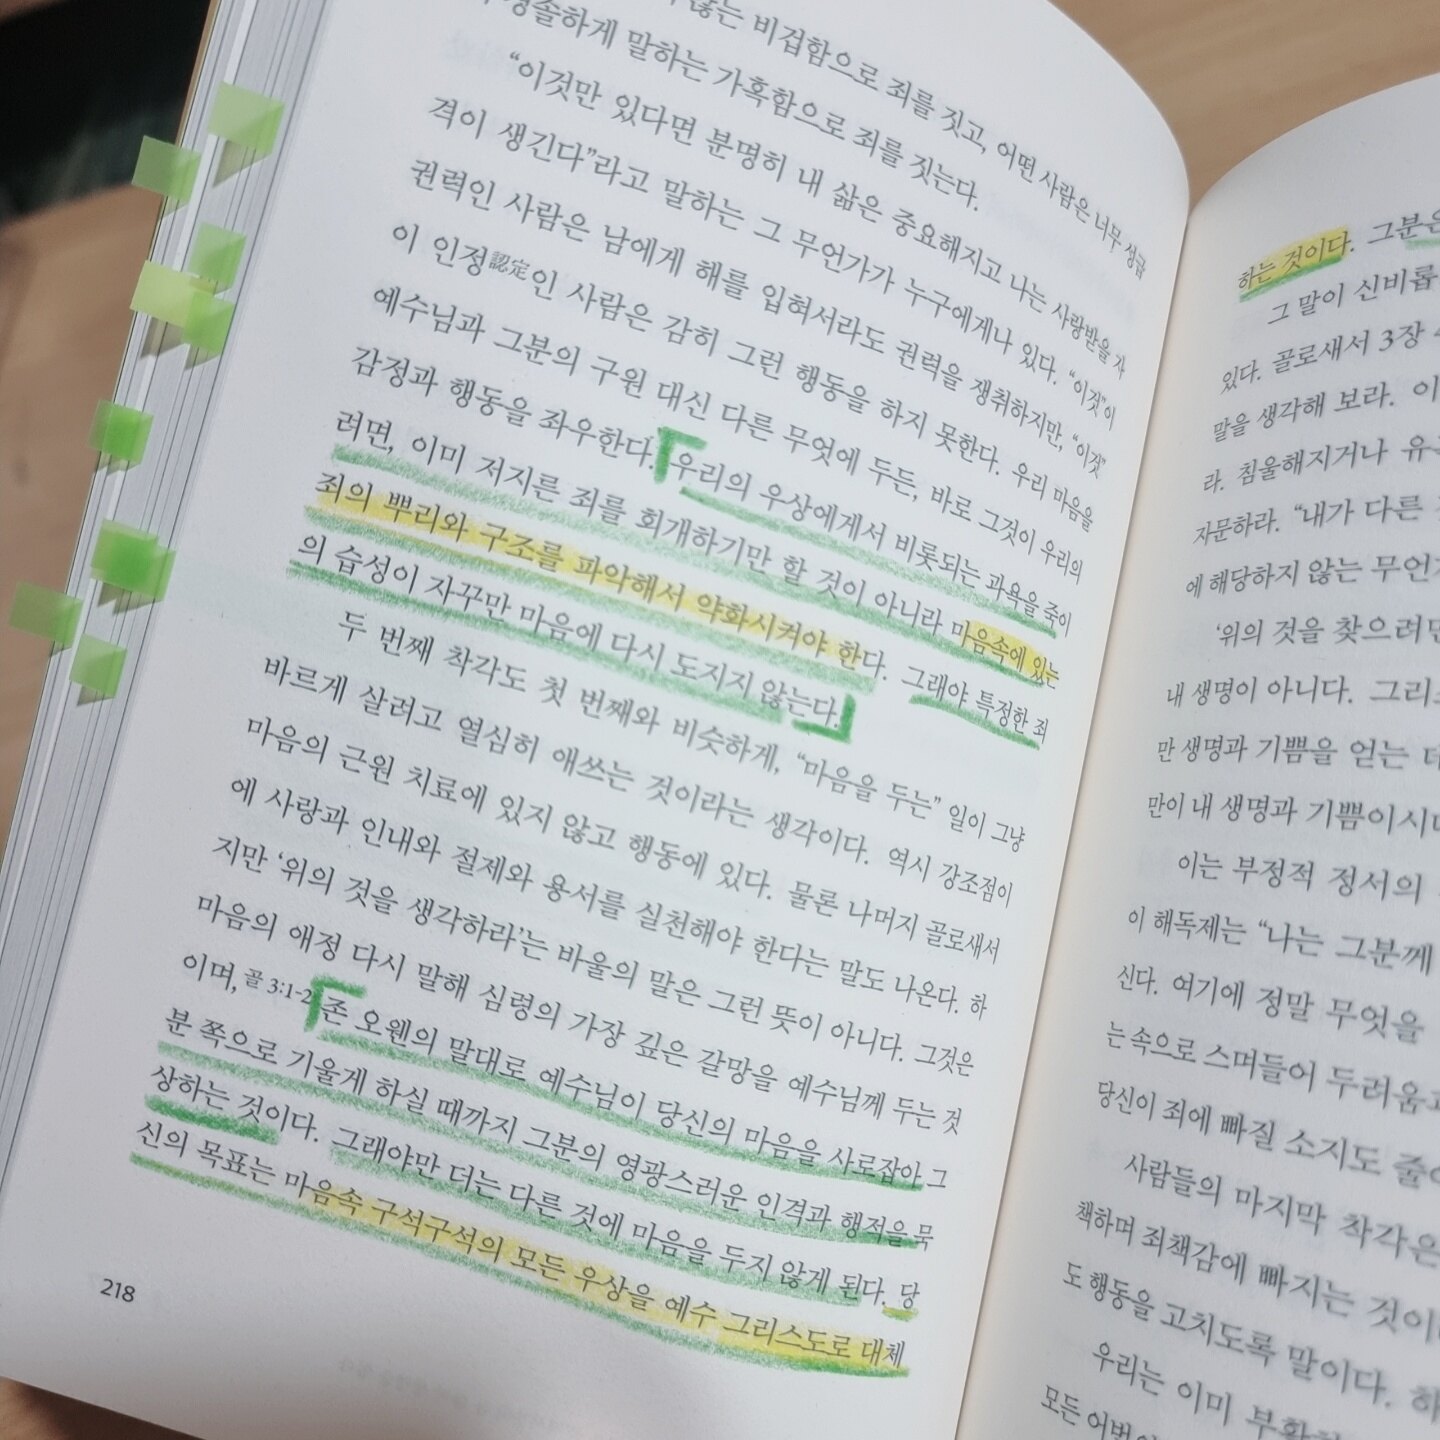 않는 비겁함으로 죄를 짓고, 어떤 사람은 너무 성급
경솔하게 말하는 가혹함으로 죄를 짓는다.
“이것만 있다면 분명히 내 삶은 중요해지고 나는 사랑받을 자
격이 생긴다”라고 말하는 그 무언가가 누구에게나 있다. “이것”이
권력인 사람은 남에게 해를 입혀서라도 권력을 쟁취하지만, “이것”
이 인정認定인 사람은 감히 그런 행동을 하지 못한다. 우리 마음을
예수님과 그분의 구원 대신 다른 무엇에 두든, 바로 그것이 우리의
감정과 행동을 좌우한다. 우리의 우상에게서 비롯되는 과욕을 죽이
려면, 이미 저지른 죄를 회개하기만 할 것이 아니라 마음속에 있는
죄의 뿌리와 구조를 파악해서 약화시켜야 한다. 그래야 특정한 죄
의 습성이 자꾸만 마음에 다시 도지지 않는다.
두 번째 착각도 첫 번째와 비슷하게, “마음을 두는” 일이 그냥
바르게 살려고 열심히 애쓰는 것이라는 생각이다. 역시 강조점이
마음의 근원 치료에 있지 않고 행동에 있다. 물론 나머지 골로새서
에 사랑과 인내와 절제와 용서를 실천해야 한다는 말도 나온다. 하
지만 ‘위의 것을 생각하라’는 바울의 말은 그런 뜻이 아니다. 그것은
마음의 애정 다시 말해 심령의 가장 깊은 갈망을 예수님께 두는 것
이며, 골 3:1-2 존 오웬의 말대로 예수님이 당신의 마음을 사로잡아 그
분 쪽으로 기울게 하실 때까지 그분의 영광스러운 인격과 행적을 묵
상하는 것이다. 그래야만 더는 다른 것에 마음을 두지 않게 된다. 당
신의 목표는 마음속 구석구석의 모든 우상을 예수 그리스도로 대체
218
하는 것이다. 그분은
그 말이 신비롭
있다. 골로새서 3장 4
말을 생각해 보라. 이
라. 침울해지거나 유
자문하라. “내가 다른
에 해당하지 않는 무언
‘위의 것을 찾으려면
내 생명이 아니다. 그리
만 생명과 기쁨을 얻는 데
만이 내 생명과 기쁨이시
이는 부정적 정서의
이 해독제는 “나는 그분께
신다. 여기에 정말 무엇을
는 속으로 스며들어 두려움
당신이 죄에 빠질 소지도 줄
사람들의 마지막 착각은
책하며 죄책감에 빠지는 것이
도 행동을 고치도록 말이다. 하
우리는 이미 부활
모든 어